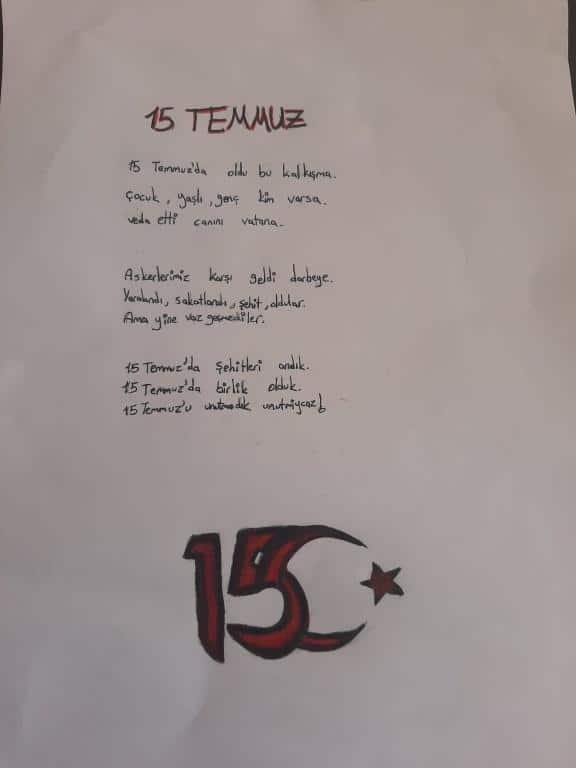 15 TEMMUZ
15 Temmuz'da oldu bu kalkışma.
Çocuk, yaşlı, genç kim varsa.
veda etti canını vatana.
Askerlerimiz karşı geldi darbeye.
Yaralandı, sakatlandı, şehit, oldular.
Ama yine vaz geçmediler.
15 Temmuz'da Şehitleri andık.
15 Temmuz'da birlik olduk.
15 Temmuz'u unutmadık unutmıycaz!
15